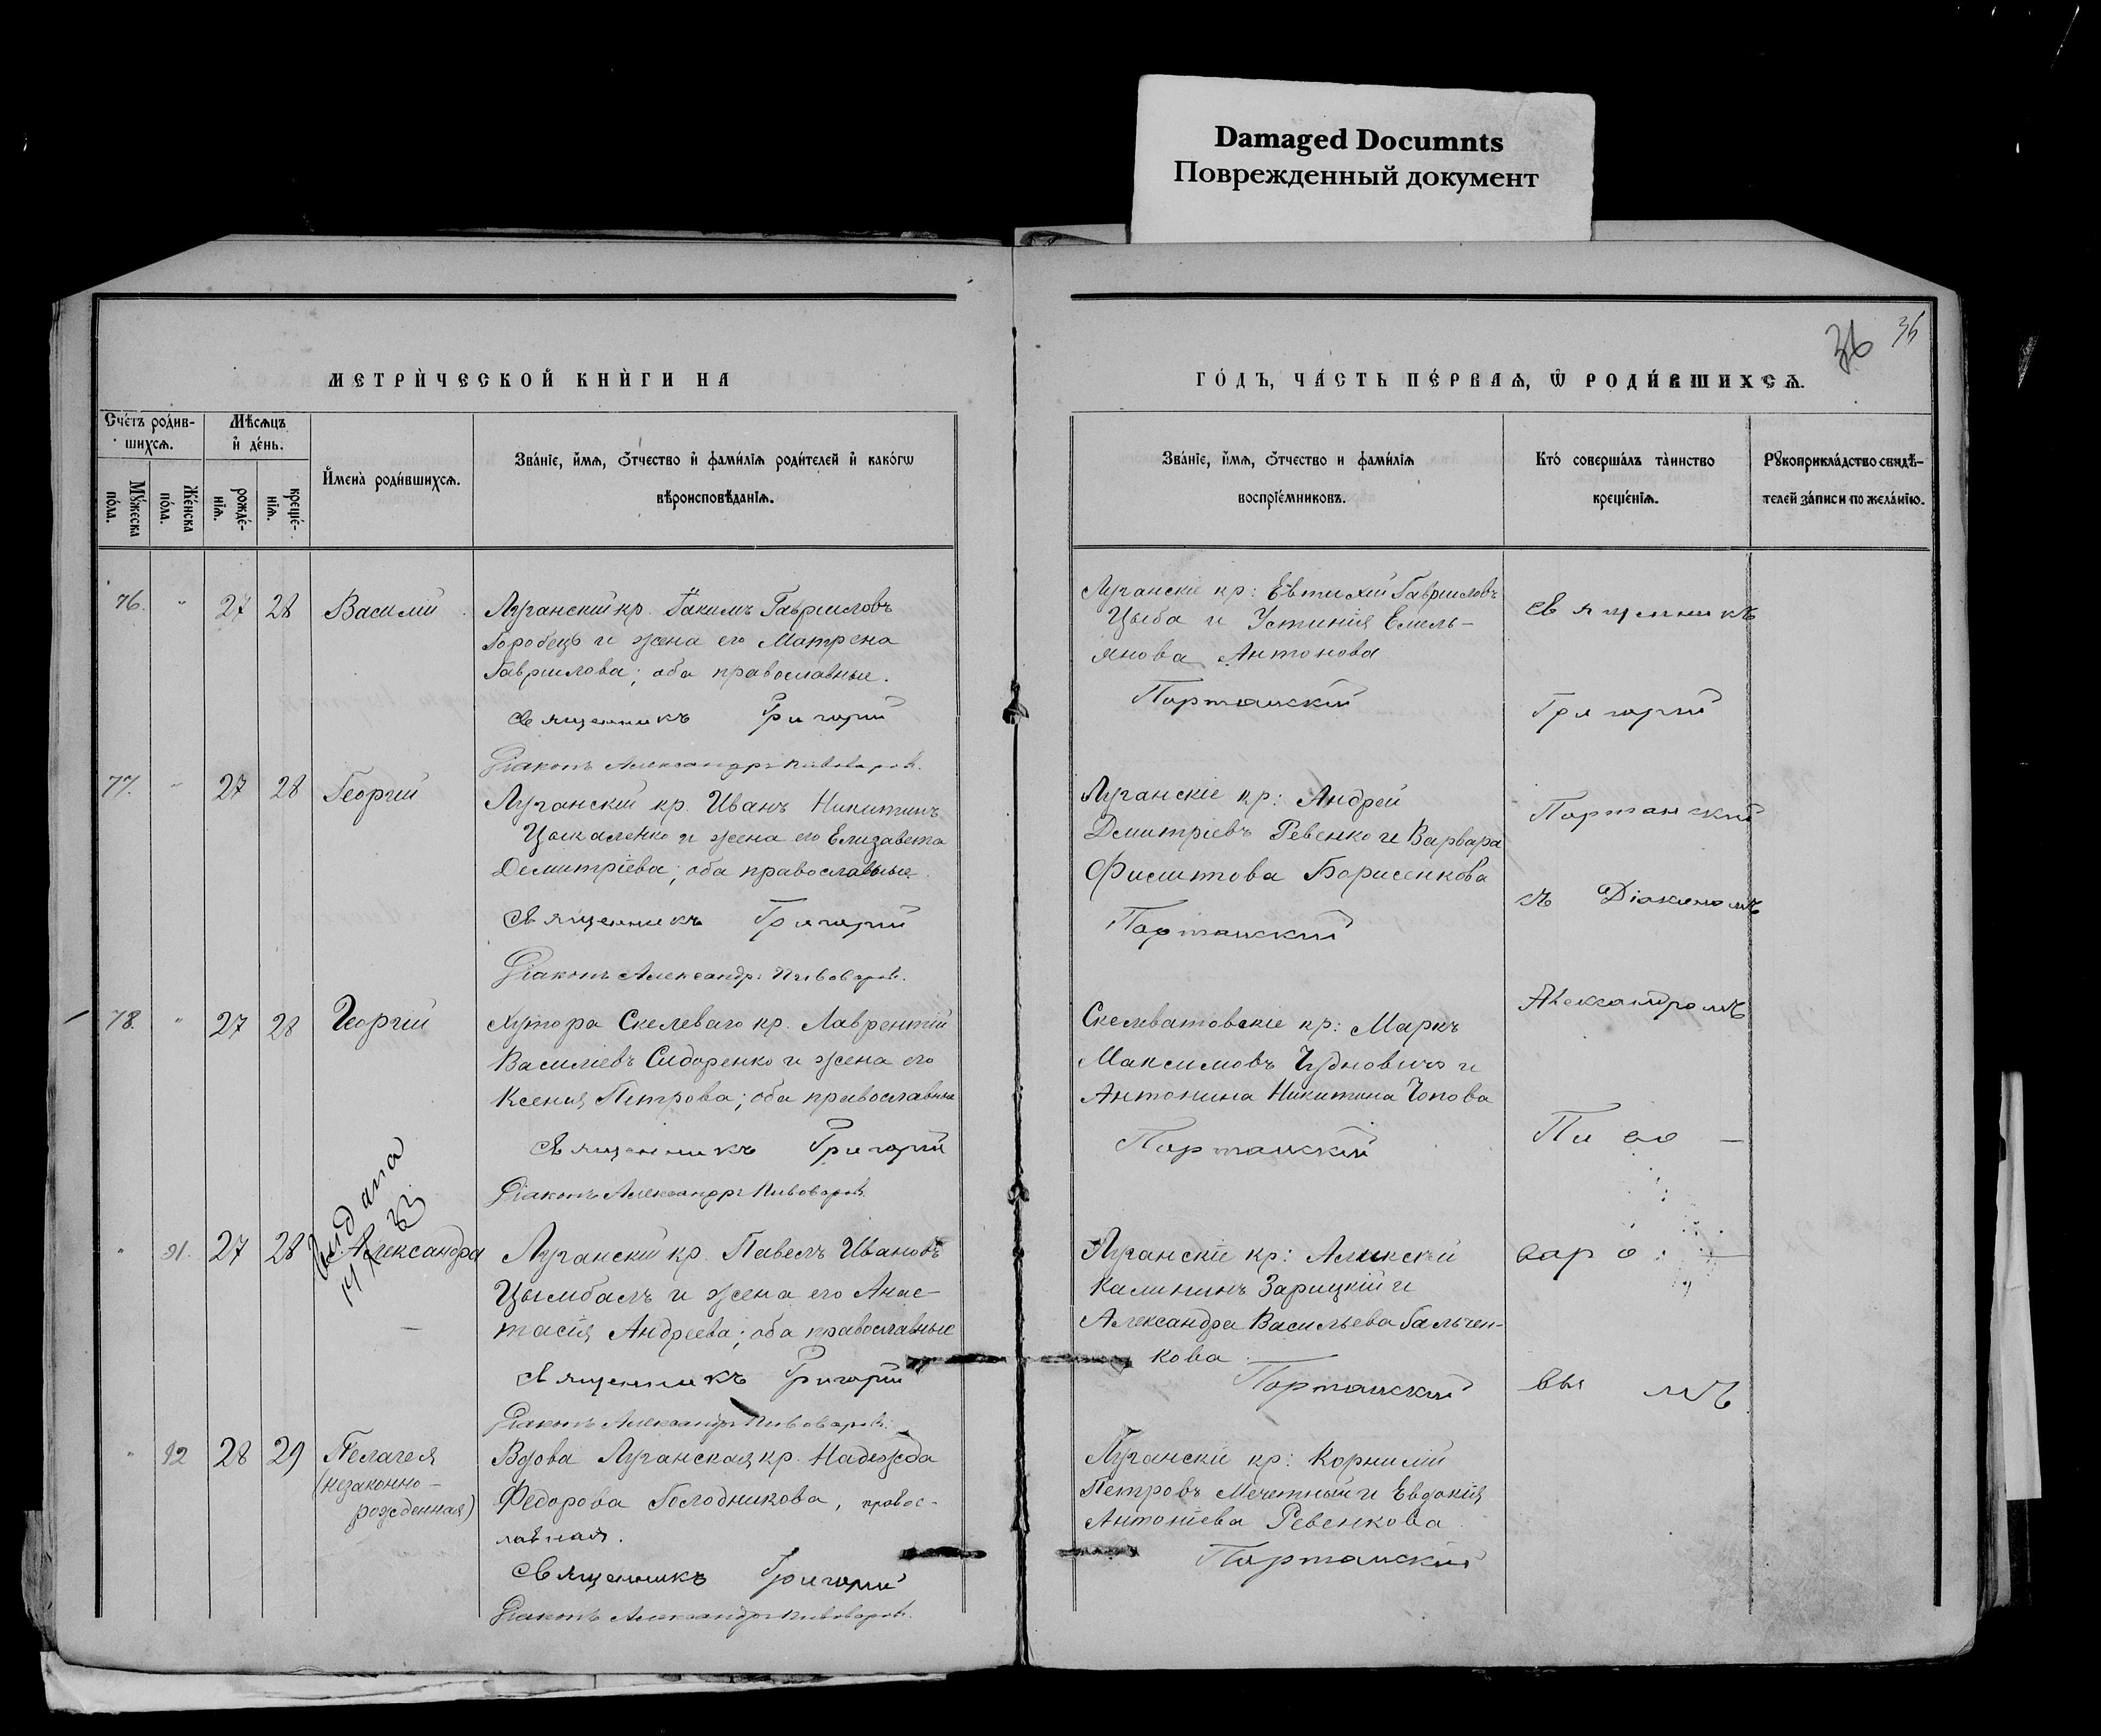 Damaged Documnts
Поврежденный документ
36 36
МЕТРИЧЕСКОЙ КНИГИ НА
ГОДЪ, ЧАСТЬ ПЕРВАЯ, Ѿ РОДИВШИХСЯ.
Счетъ родив-
шихся.
Мѣсяцъ
и день.
Мужеска
пола.
Женска
пола.
рожде-
нія.
креще-
нія.
Имена родившихся.
Званіе, имя, отчество и фамилія родителей и какогѡ
вѣроисповѣданія.
Званіе, имя, отчество и фамилія
воспріемниковъ.
Кто совершалъ таинство
крещенія.
Рукоприкладство свидѣ-
телей записи по желанію.
76. " 27 28 Василій
Луганскій кр. Іакимъ Гавриловъ
Горобець и жена его Матрена
Гаврилова; оба православные.
Священникъ Григорій
Діаконъ Александръ Пивоваровъ.
Луганскіе кр: Евтихій Гавриловъ
Цыба и Устинія Емель-
янова Антонова
Портанскій
Священникъ
Григорій
77. " 27 28 Георгій
Луганскій кр. Иванъ Никитинъ
Цыкаленко и жена его Елизавета
Демитріева; оба православные
Священникъ Григорій
Діаконъ Александръ Пивоваровъ.
Луганскіе кр: Андрей
Дмитріевъ Ревенко и Варвара
Борисенкова
Портанский
Портанский
съ Діакономъ
78. " 27 28 Георгій
Хутора Скелеваго кр. Лаврентій
Василіевъ Сидоренко и жена его
Ксенія Петрова; оба православные
Священникъ Григорій
Діаконъ Александръ Пивоваровъ.
Скелеватовскіе кр: Маркъ
Максимовъ Чудновичъ и
Антонина Никитина Попова
Портанскій
Александромъ
Пиво –
" 91. 27 28 Александра
Луганскій кр. Павелъ Ивановъ
Цымбалъ и жена его Анас-
тасія Андреева; оба православные
Священникъ Григорій
Діаконъ Александръ Пивоваровъ.
Луганскіе кр: Алексѣй
Калининъ Зарицкій и
Александра Васильева Гальчен-
кова
Портанский
варо
вымъ
" 92 28 29 Пелагея
(незаконно-
рожденная)
Вдова Луганская кр. Надежда
Федорова Голодникова, правос-
лавная.
Священникъ Григорій
Діаконъ Александръ Пивоваровъ.
Луганскіе кр: Корнилій
Петровъ Мечетный и Евдокія
Антоніева Ревенкова
Портанский